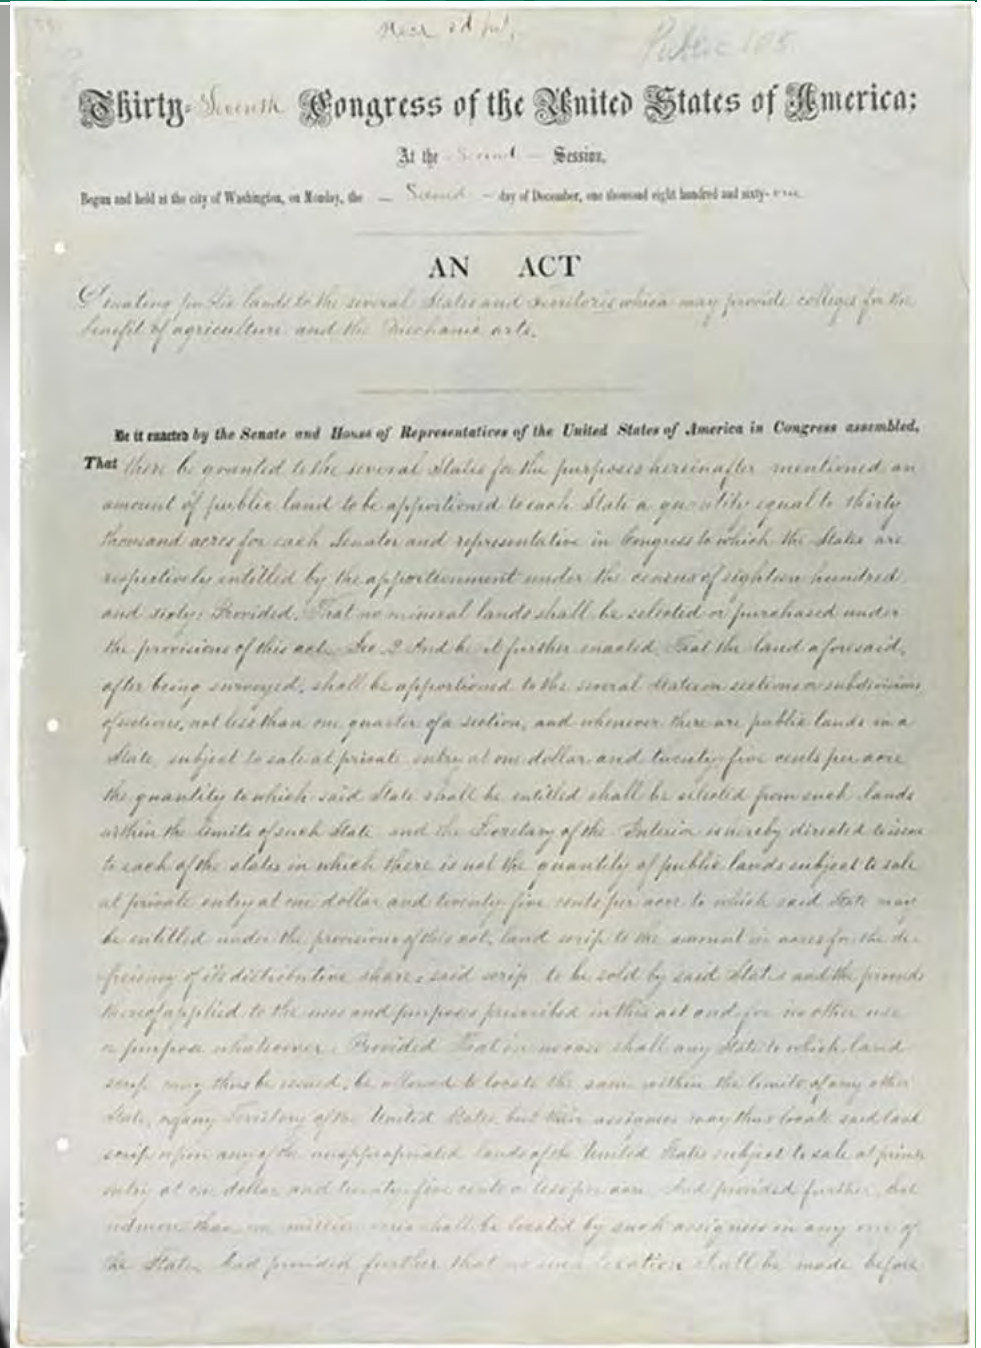 Public 108
Thirty-Seventh Congress of the United States of America;
At the Second Session,
Begun and held at the city of Washington, on Monday, the Second day of December, one thousand eight hundred and sixty-one.
AN ACT
Donating public lands to the several States and Territories which may provide colleges for the
benefit of agriculture and the Mechanic arts.
Be it enacted by the Senate and House of Representatives of the United States of America in Congress assembled,
That there be granted to the several States for the purposes hereinafter mentioned an
amount of public land to be apportioned to each State a quantity equal to thirty
thousand acres for each Senator and representative in Congress to which the States are
respectively entitled by the apportionment under the census of eighteen hundred
and sixty: Provided, That no mineral lands shall be selected or purchased under
the provisions of this act. Sec. 2 And be it further enacted, That the land aforesaid,
after being surveyed, shall be apportioned to the several States in sections or subdivisions
of sections, not less than one quarter of a section, and whenever there are public lands in a
State, subject to sale at private entry at one dollar and twenty-five cents per acre
the quantity to which said State shall be entitled shall be selected from such lands
within the limits of such State and the Secretary of the Interior is hereby directed to issue
to each of the states in which there is not the quantity of public lands subject to sale
at private entry at one dollar and twenty five cents per acre to which said State may
be entitled under the provisions of this act, land scrip to the amount in acres for the de-
ficiency of its distributive share; said scrip to be sold by said States and the proceeds
thereof applied to the uses and purposes prescribed in this act and for no other use
or purpose whatsoever: Provided That in no case shall any State to which land
scrip may thus be issued, be allowed to locate the same within the limits of any other
State, or of any Territory of the United States but their assignees may thus locate said land
scrip upon any of the unappropriated lands of the United States subject to sale at private
entry at one dollar and twenty-five cents or less per acre. And provided further, that
not more than one million acres shall be located by such assignees in any one of
the States. And provided further that no such location shall be made before